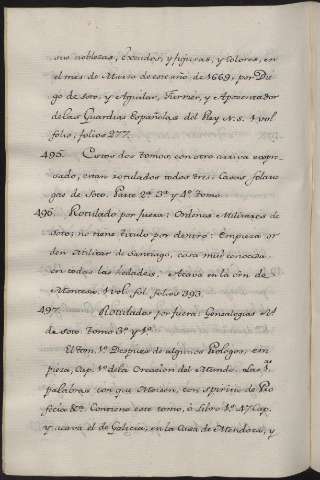 sus noblezas, Escudos, y figuras, y colores, en
el mes de Marzo de este año de 1669, por Die
go de Soto, y Aguilar, Furrier, y Aposentador
de las Guardias Españolas del Rey N. S. 1 vol
folio, folios 277.
495. Estos dos tomos, con otro arriva expre-
sado, estan rotulados todos tres: Casas solarie
gas de Soto. Parte 2ª 3ª y 4º tomo.
496. Rotulado por fuera: Ordenes Militares de
Soto; no tiene titulo por dentro: Empieza or
den Militar de Santiago, cosa muy conocida
en todas las hedades. Acava en la orn de
Montesa. 1 vol. fol. folios 393.
497. Rotulados por fuera: Genealogias
de Soto. Tomo 3º y 4º.
El tom. 1º Despues de algunos Prologos, em
pieza, Cap. 1º de la Creacion del Mundo. Las 1ªˢ
palabras con que Moisen, con spiritu de Pro
fecia &ª. Contiene este tomo, ó Libro 1º 47 Cap.
y acava el de Galicia, en la Casa de Mendoza, y